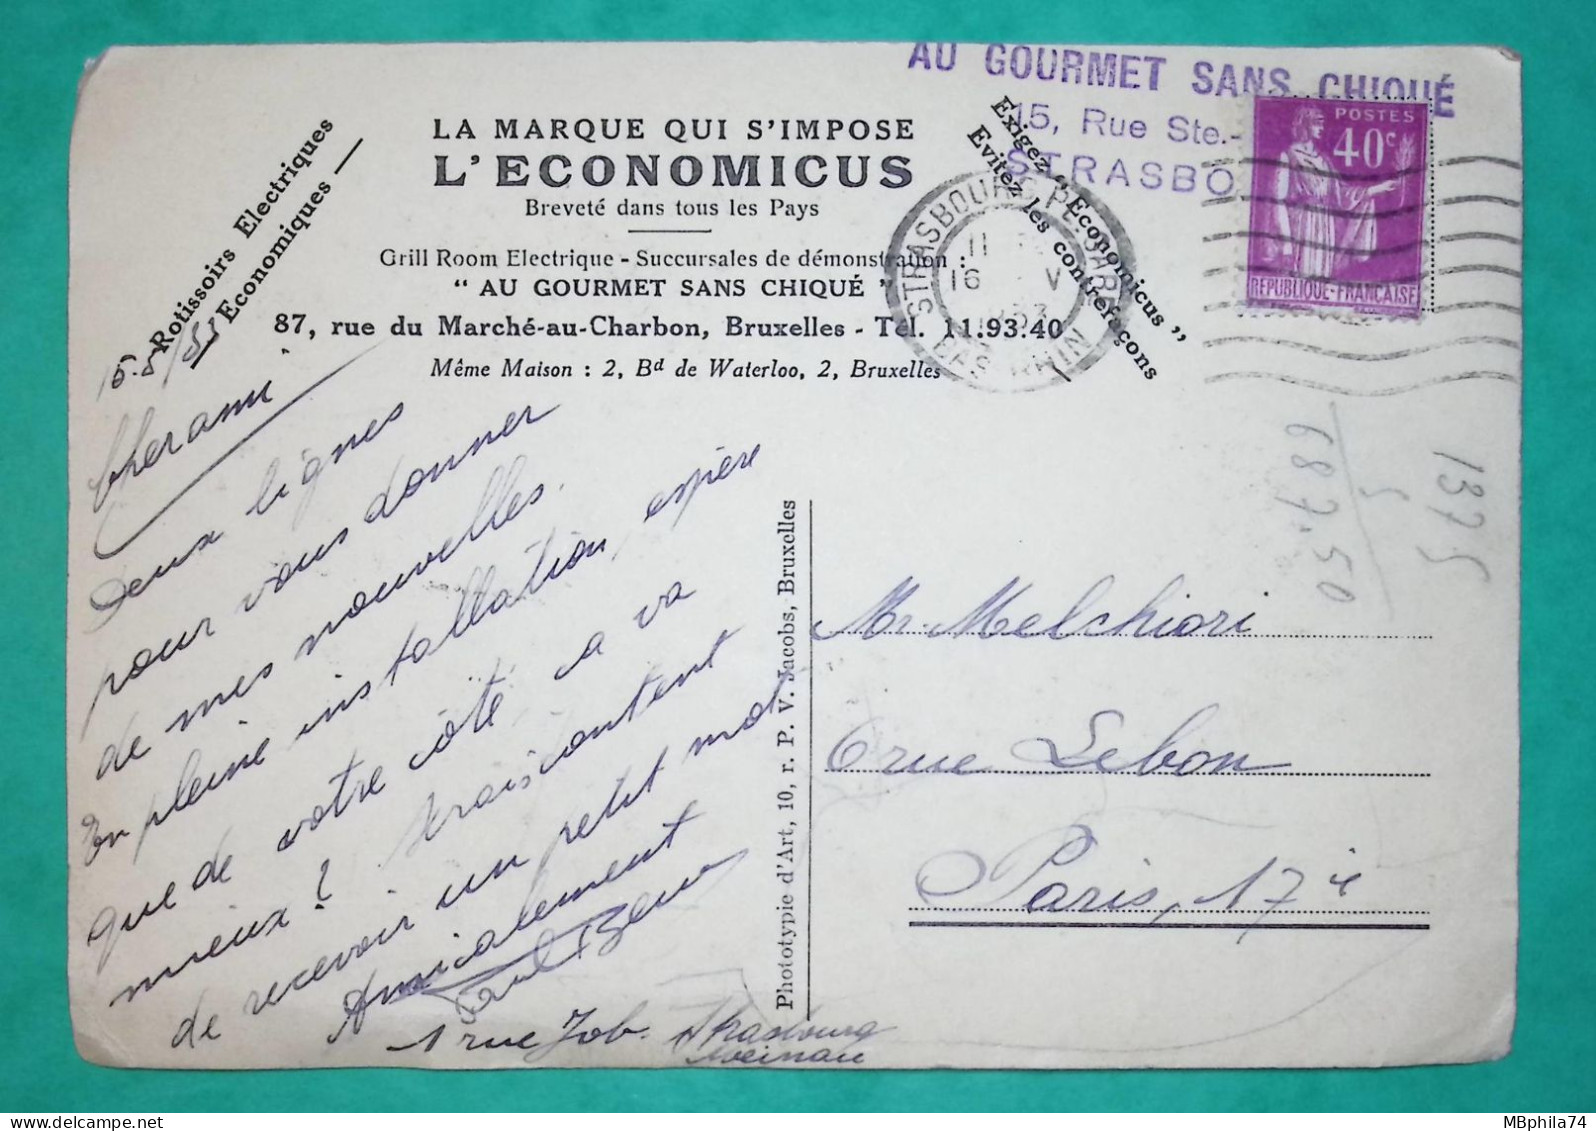 AU GOURMET SANS CHIQUÉ
15, Rue Ste.-
STRASBO
POSTES
40c
REPUBLIQUE-FRANÇAISE
STRASBOURG PL. GARE
11
16 V
BAS-RHIN
Rotissoirs Electriques
Economiques
LA MARQUE QUI S'IMPOSE
L'ECONOMICUS
Breveté dans tous les Pays
Grill Room Electrique - Succursales de démonstration :
“ AU GOURMET SANS CHIQUÉ ”
87, rue du Marché-au-Charbon, Bruxelles - Tél. 11.93.40
Même Maison : 2, Bd de Waterloo, 2, Bruxelles
Exigez “ Economicus ”
Evitez les contrefaçons
Cher ami
Deux lignes
pour vous donner
de mes nouvelles.
En pleine installation, espère
que de votre côté, ca va
mieux? Serais content
de recevoir un petit mot
Amicalement
1 rue Job. Strasbourg
Meinau
Phototypie d'Art, 10, r. P. V. Jacobs, Bruxelles
Mr. Melchiori
6 rue Lebon
Paris, 17e
1375
5
687.50
MBphila74